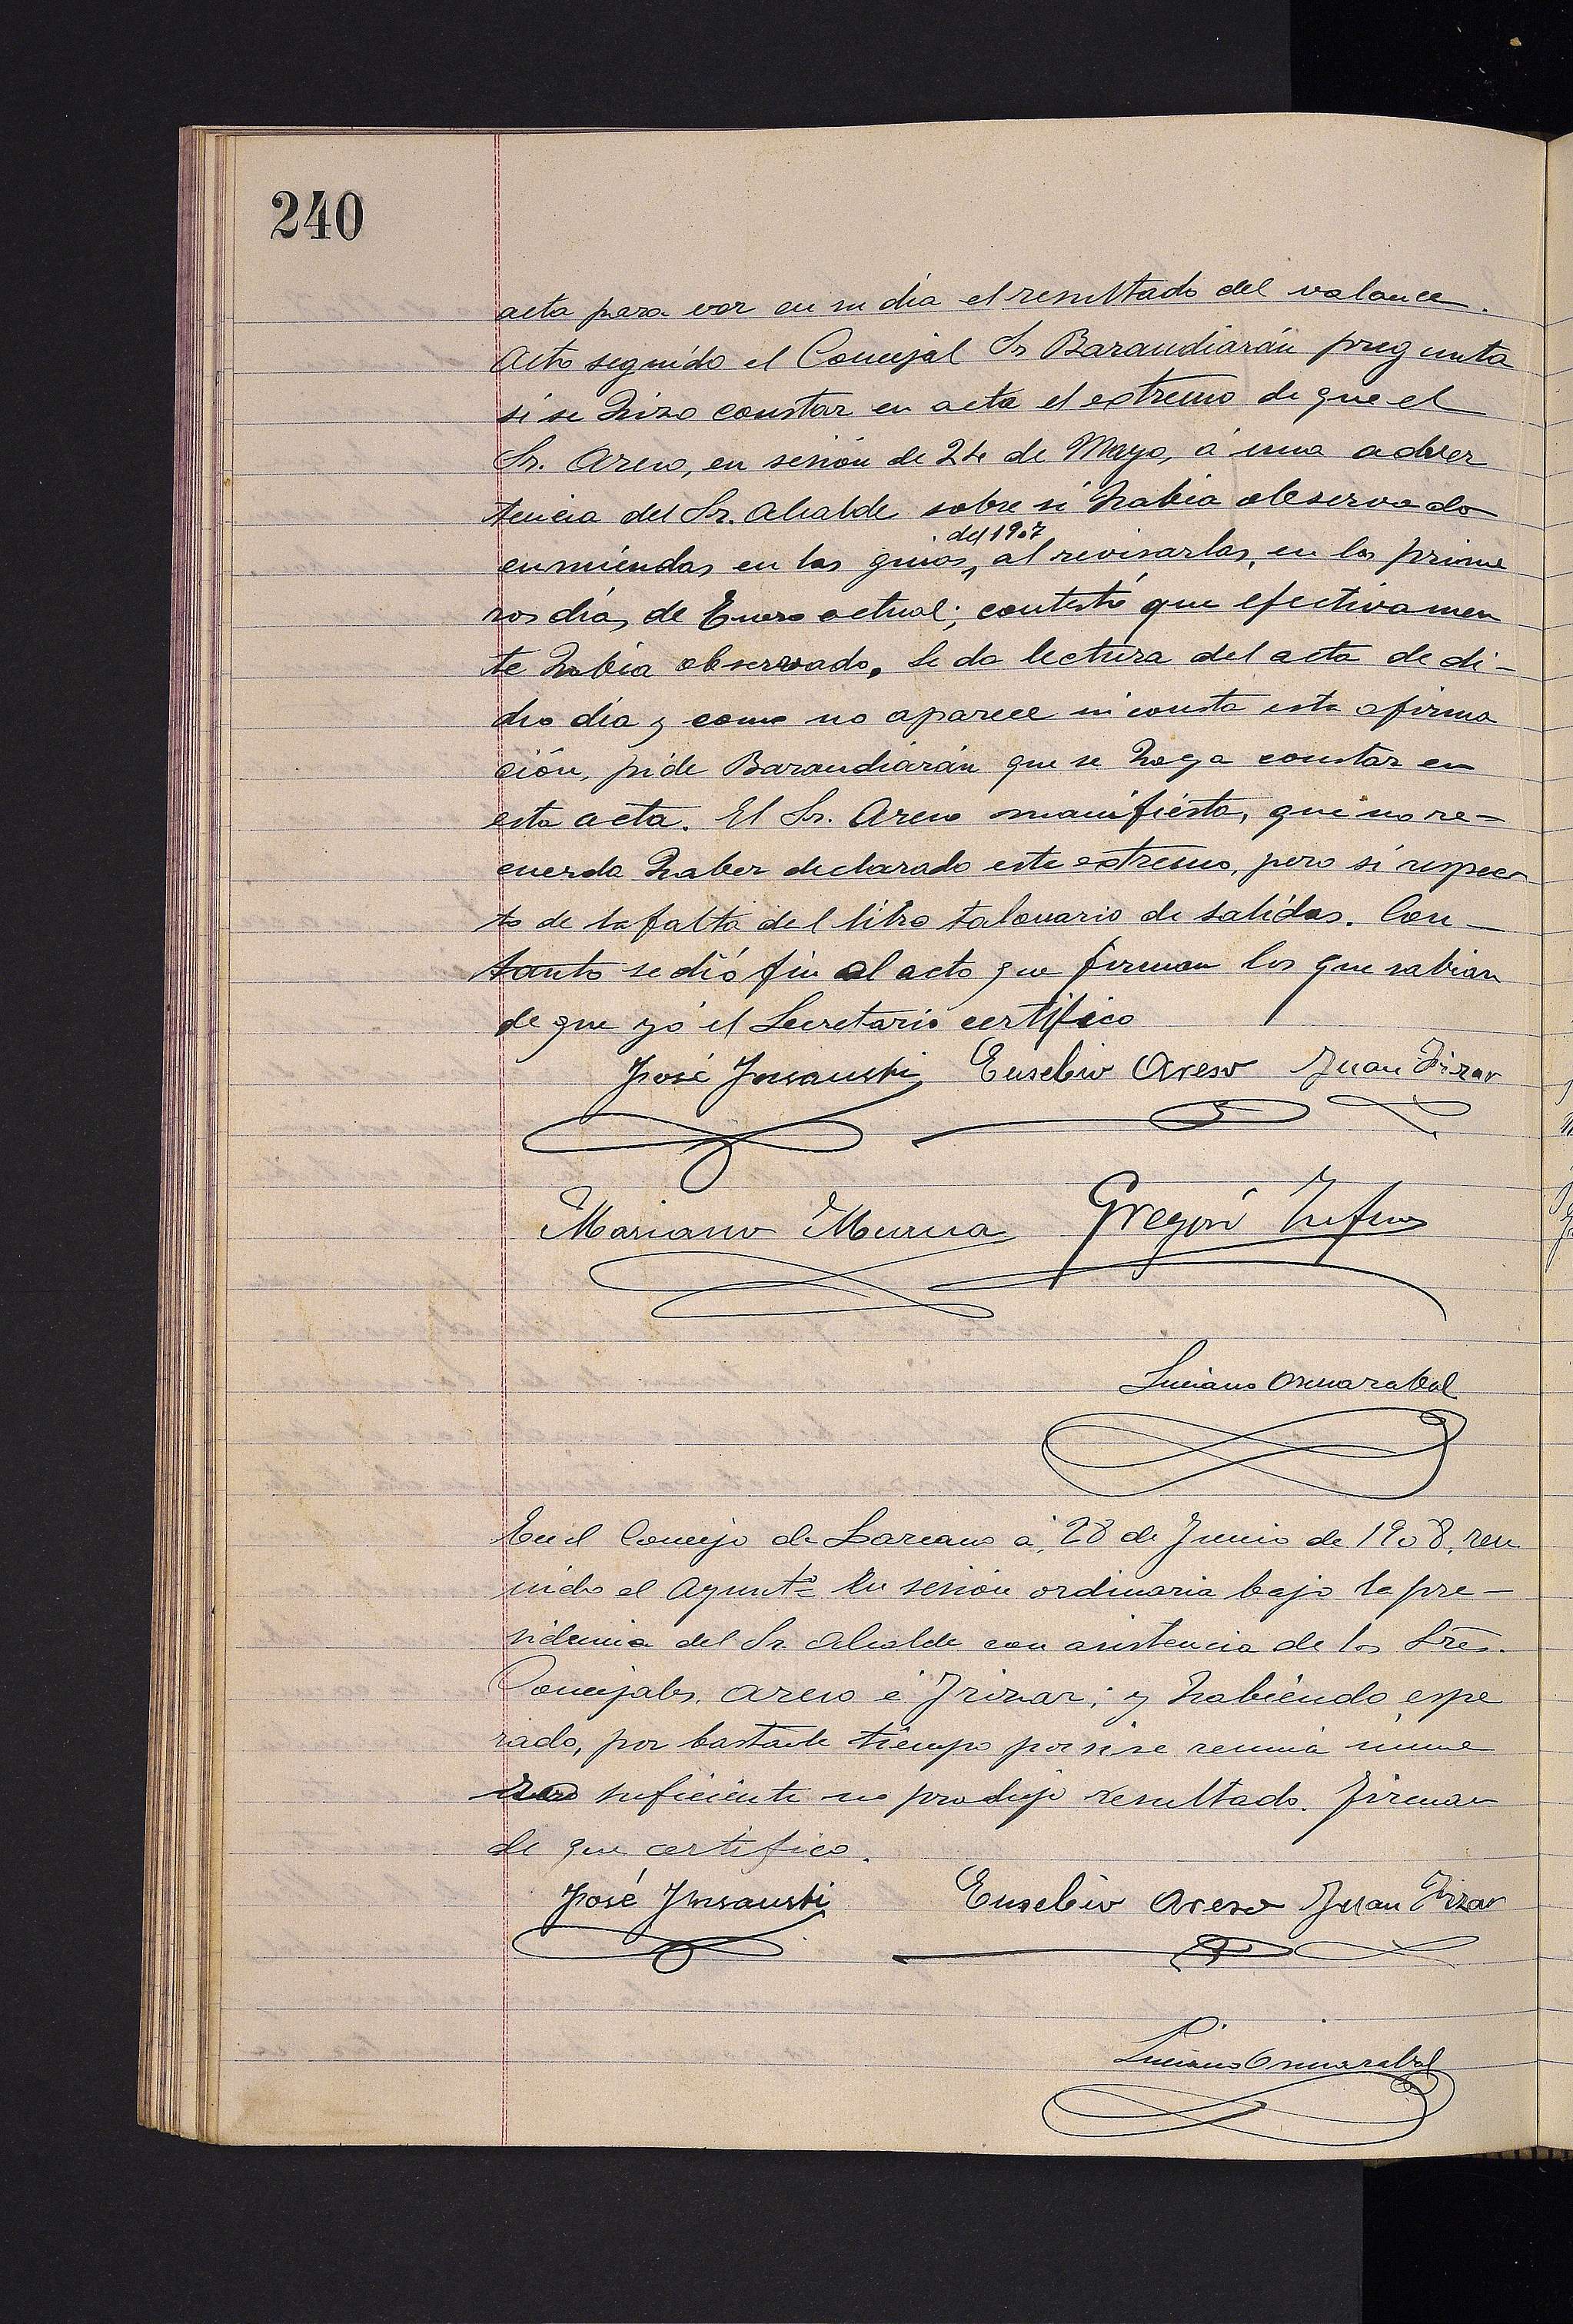 240
acta para ver en su dia el resultado del valance.
Acto seguido el Concejal Sr Barandiarán pregunta
si se hizo constar en acta el extremo de que el
Sr. Areso, en sesión de 24 de Mayo, á una adver
tencia del Sr. Alcalde sobre si habia observado
del 1907
enmiendas en las guias, al revisarlas, en los prime
ros dias de Enero actual; contestó que efectivamen
te habia observado. Se da lectura del acta de di-
cho dia y como no aparece ni consta esta afirma
ción, pide Barandiarán que se haga constar en
esta acta. El Sr. Areso manifiesta, que no re-
cuerda haber declarado este extremo, pero si respec
to de la falta del libro talonario de salidas. Con
tanto se dió fin al acto que firman los que sabian
de que yo el Secretario certifico
José Insausti Eusebio Areso Juan Irizar
Mariano Murua Gregori
Luciano Osinarabal
En el Concejo de Lazcano á 28 de Junio de 1908, reu
nido el Ayuntº en sesión ordinaria bajo la pre-
sidencia del Sr. Alcalde con asistencia de los Sres.
Concejales, Areso é Irizar; y habiendo espe
rado, por bastante tiempo por si se reunia núme
ro suficiente no produjo resultado. Firman
de que certifico.
José Insausti Eusebio Areso Juan Irizar
Luciano Osinarabal